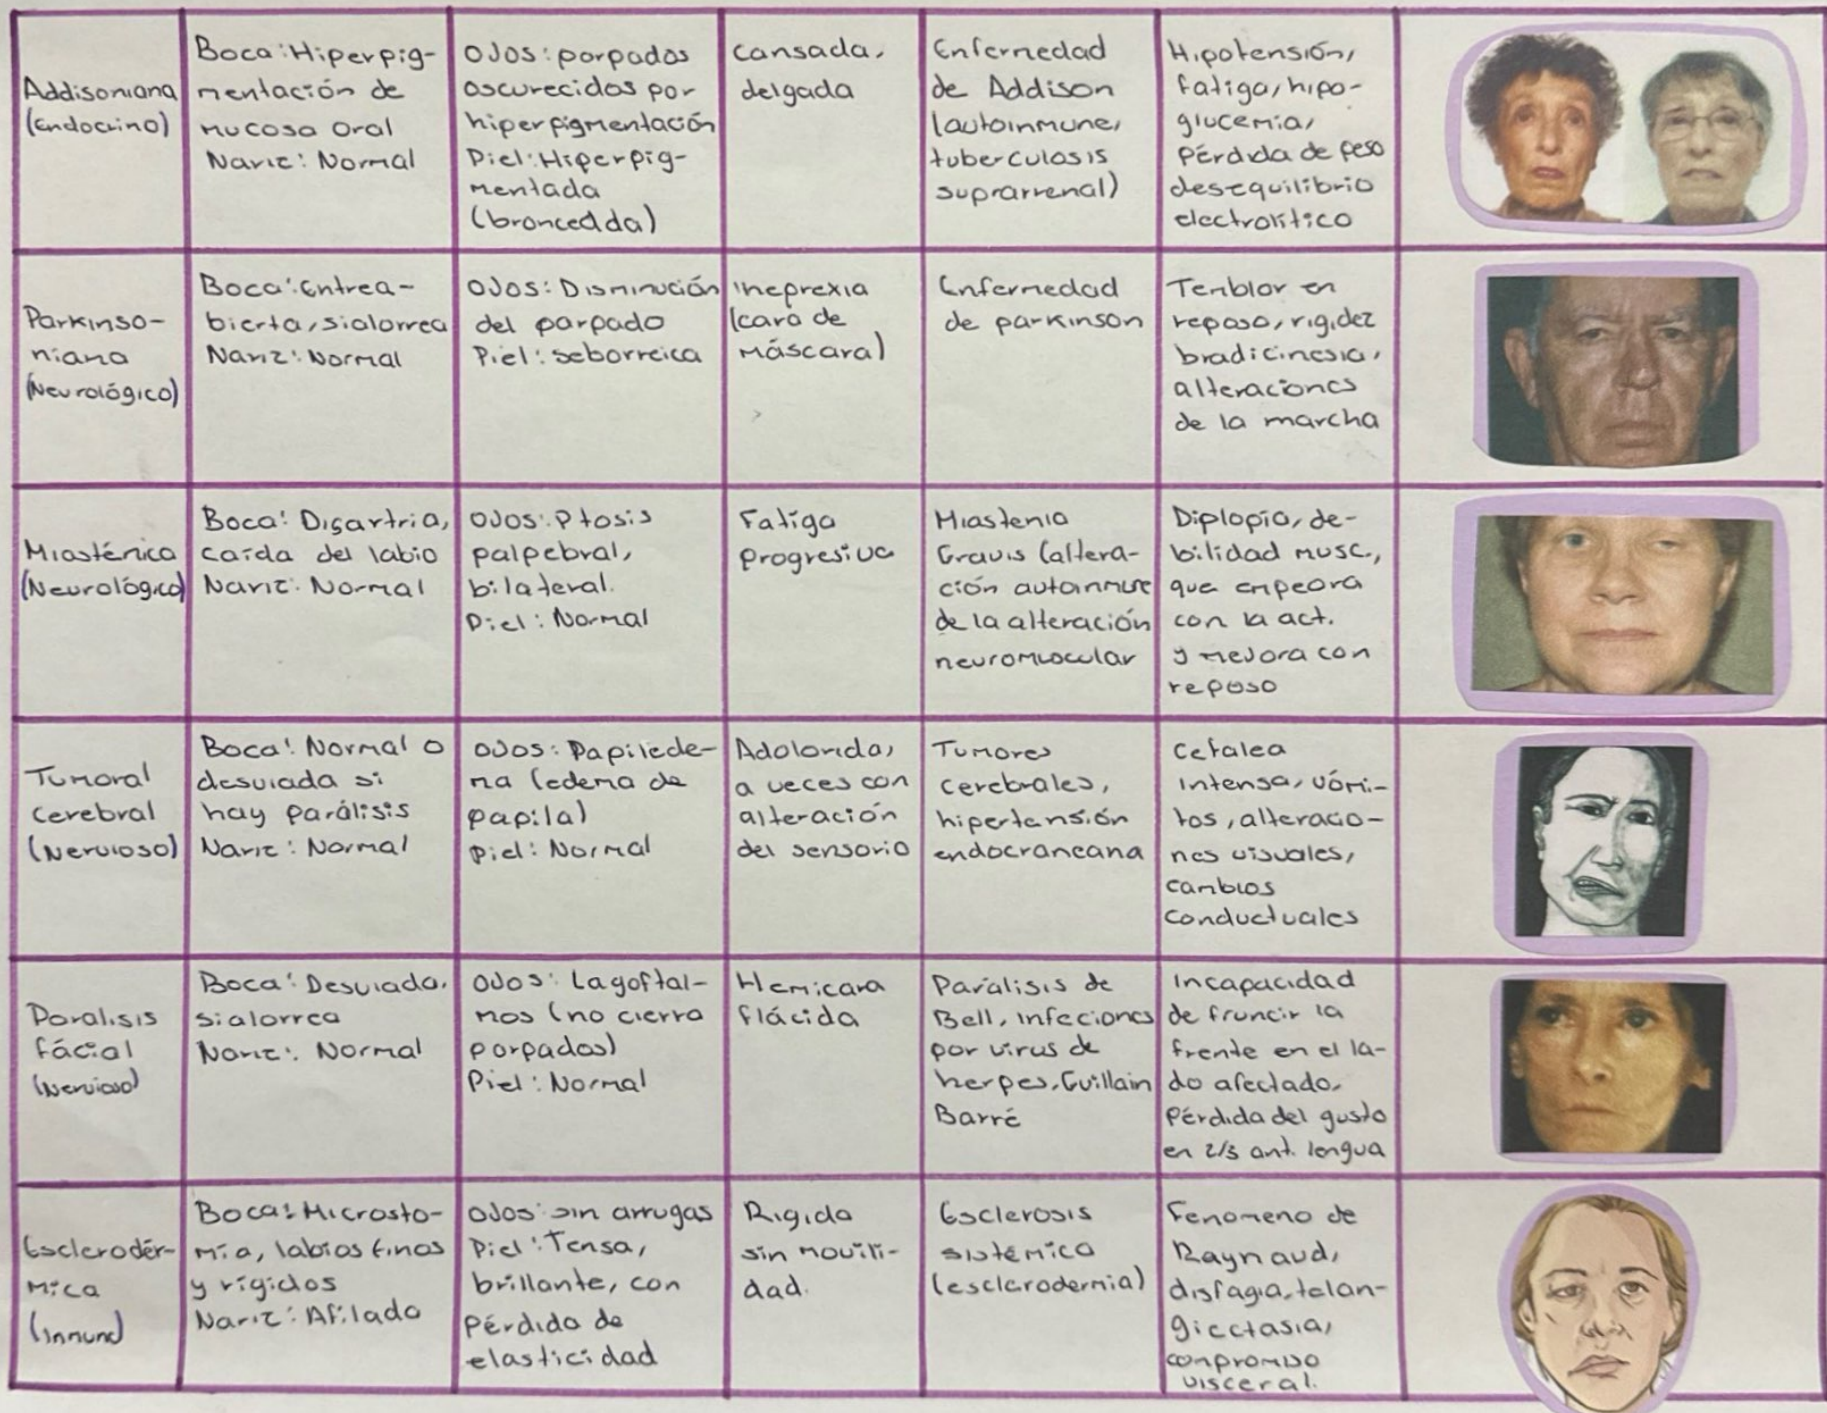 Addisoniana
(Endocrino)
Boca: Hiperpig-
mentación de
mucosa oral
Nariz: Normal
Ojos: parpados
oscurecidos por
hiperpigmentación
Piel: Hiperpig-
mentada
(broncedda)
Cansada,
delgada
Enfermedad
de Addison
(autoinmune,
tuberculosis
suprarrenal)
Hipotensión,
fatiga, hipo-
glucemia,
Pérdida de peso
desequilibrio
electrolítico
Parkinso-
niana
(Neurológico)
Boca: Entrea-
bierta, sialorrea
Nariz: Normal
Ojos: Disminución
del parpado
Piel: seborreica
Ineprexia
(cara de
máscara)
Enfermedad
de parkinson
Temblor en
reposo, rigidez
bradicinesia,
alteraciones
de la marcha
Miasténica
(Neurológico)
Boca: Disartria,
caída del labio
Nariz: Normal
Ojos: Ptosis
palpebral,
bilateral.
Piel: Normal
Fatiga
progresiva
Miastenia
Gravis (altera-
ción autoinmune
de la alteración
neuromuscular
Diplopía, de-
bilidad musc.,
que empeora
con la act.
y mejora con
reposo
Tumoral
cerebral
(Nervioso)
Boca: Normal o
desviada si
hay parálisis
Nariz: Normal
Ojos: Papilede-
ma (edema de
papila)
Piel: Normal
Adolorida,
a veces con
alteración
del sensorio
Tumores
cerebrales,
hipertensión
endocraneana
Cefalea
intensa, vómi-
tos, alteracio-
nes visuales,
cambios
conductuales
Paralisis
fácial
(Nervioso)
Boca: Desviada,
sialorrea
Nariz: Normal
Ojos: Lagoftal-
mos (no cierra
parpados)
Piel: Normal
Hemicara
flácida
Parálisis de
Bell, infeciones
por virus de
herpes, Guillain
Barré
Incapacidad
de fruncir la
frente en el la-
do afectado,
Pérdida del gusto
en 2/3 ant. lengua
Esclerodér-
mica
(Inmune)
Boca: Microsto-
mía, labios finos
y rígidos
Nariz: Afilado
Ojos: sin arrugas
Piel: Tensa,
brillante, con
pérdida de
elasticidad
Rigida
sin movili-
dad.
Esclerosis
sistémica
(esclerodermia)
Fenomeno de
Raynaud,
disfagia, telan-
giectasia,
compromiso
visceral.